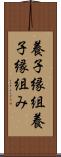 養子縁組養
子縁組み